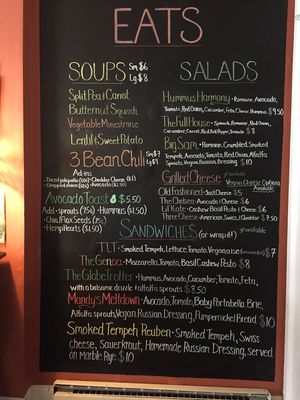 EATS
SOUPS Sm $6
Lg $8
Split Pea & Carrot
Butternut Squash
Vegetable Minestrone
Lentil & Sweet Potato
3 Bean Chili Sm $7
Lg $9
Add-ins
Avocado Toast $5.50
Add - sprouts (75¢) - Hummus ($1.50)
- Chia/Flax Seeds ($1)
- Hemp Hearts ($1.50)
SALADS
Hummus Harmony - Romaine, Avocado,
Tomato, Red Onion, Cucumber, Feta Cheese, Hummus $9.50
The Full House - Spinach, Romaine, Red Onion,
Cucumber, Carrot, Red Bell Pepper, Tomato $8
Big Sam - Romaine, Crumbled, Smoked
Tempeh, Avocado, Tomato, Red Onion, Alfalfa
Sprouts, Vegan Russian Dressing $10
Grilled Cheese
Vegan Cheese Options
Available
Old Fashioned - Swiss or Cheddar $5
The Chelsea - Avocado & Cheese $6
Tul Kale - Cashew Basil Pesto & Cheese $6
Three Cheese - American, Swiss, & Cheddar $7.50
SANDWICHES (or wrap it!)
TLT - Smoked Tempeh, Lettuce, Tomato, Veganaise $7
The Genoa - Mozzarella, Tomato, Basil Cashew Pesto $8
The Globe Trotter - Hummus, Avocado, Cucumber, Tomato, Feta,
with a balsamic drizzle & alfalfa sprouts $8.50
Mandy's Meltdown - Avocado, Tomato, Baby Portabella, Brie,
Alfalfa sprouts, Vegan Russian Dressing, Pumpernickel Bread $10
Smoked Tempeh Reuben - Smoked Tempeh, Swiss
cheese, Sauerkraut, Homemade Russian Dressing, served
on Marble Rye $10